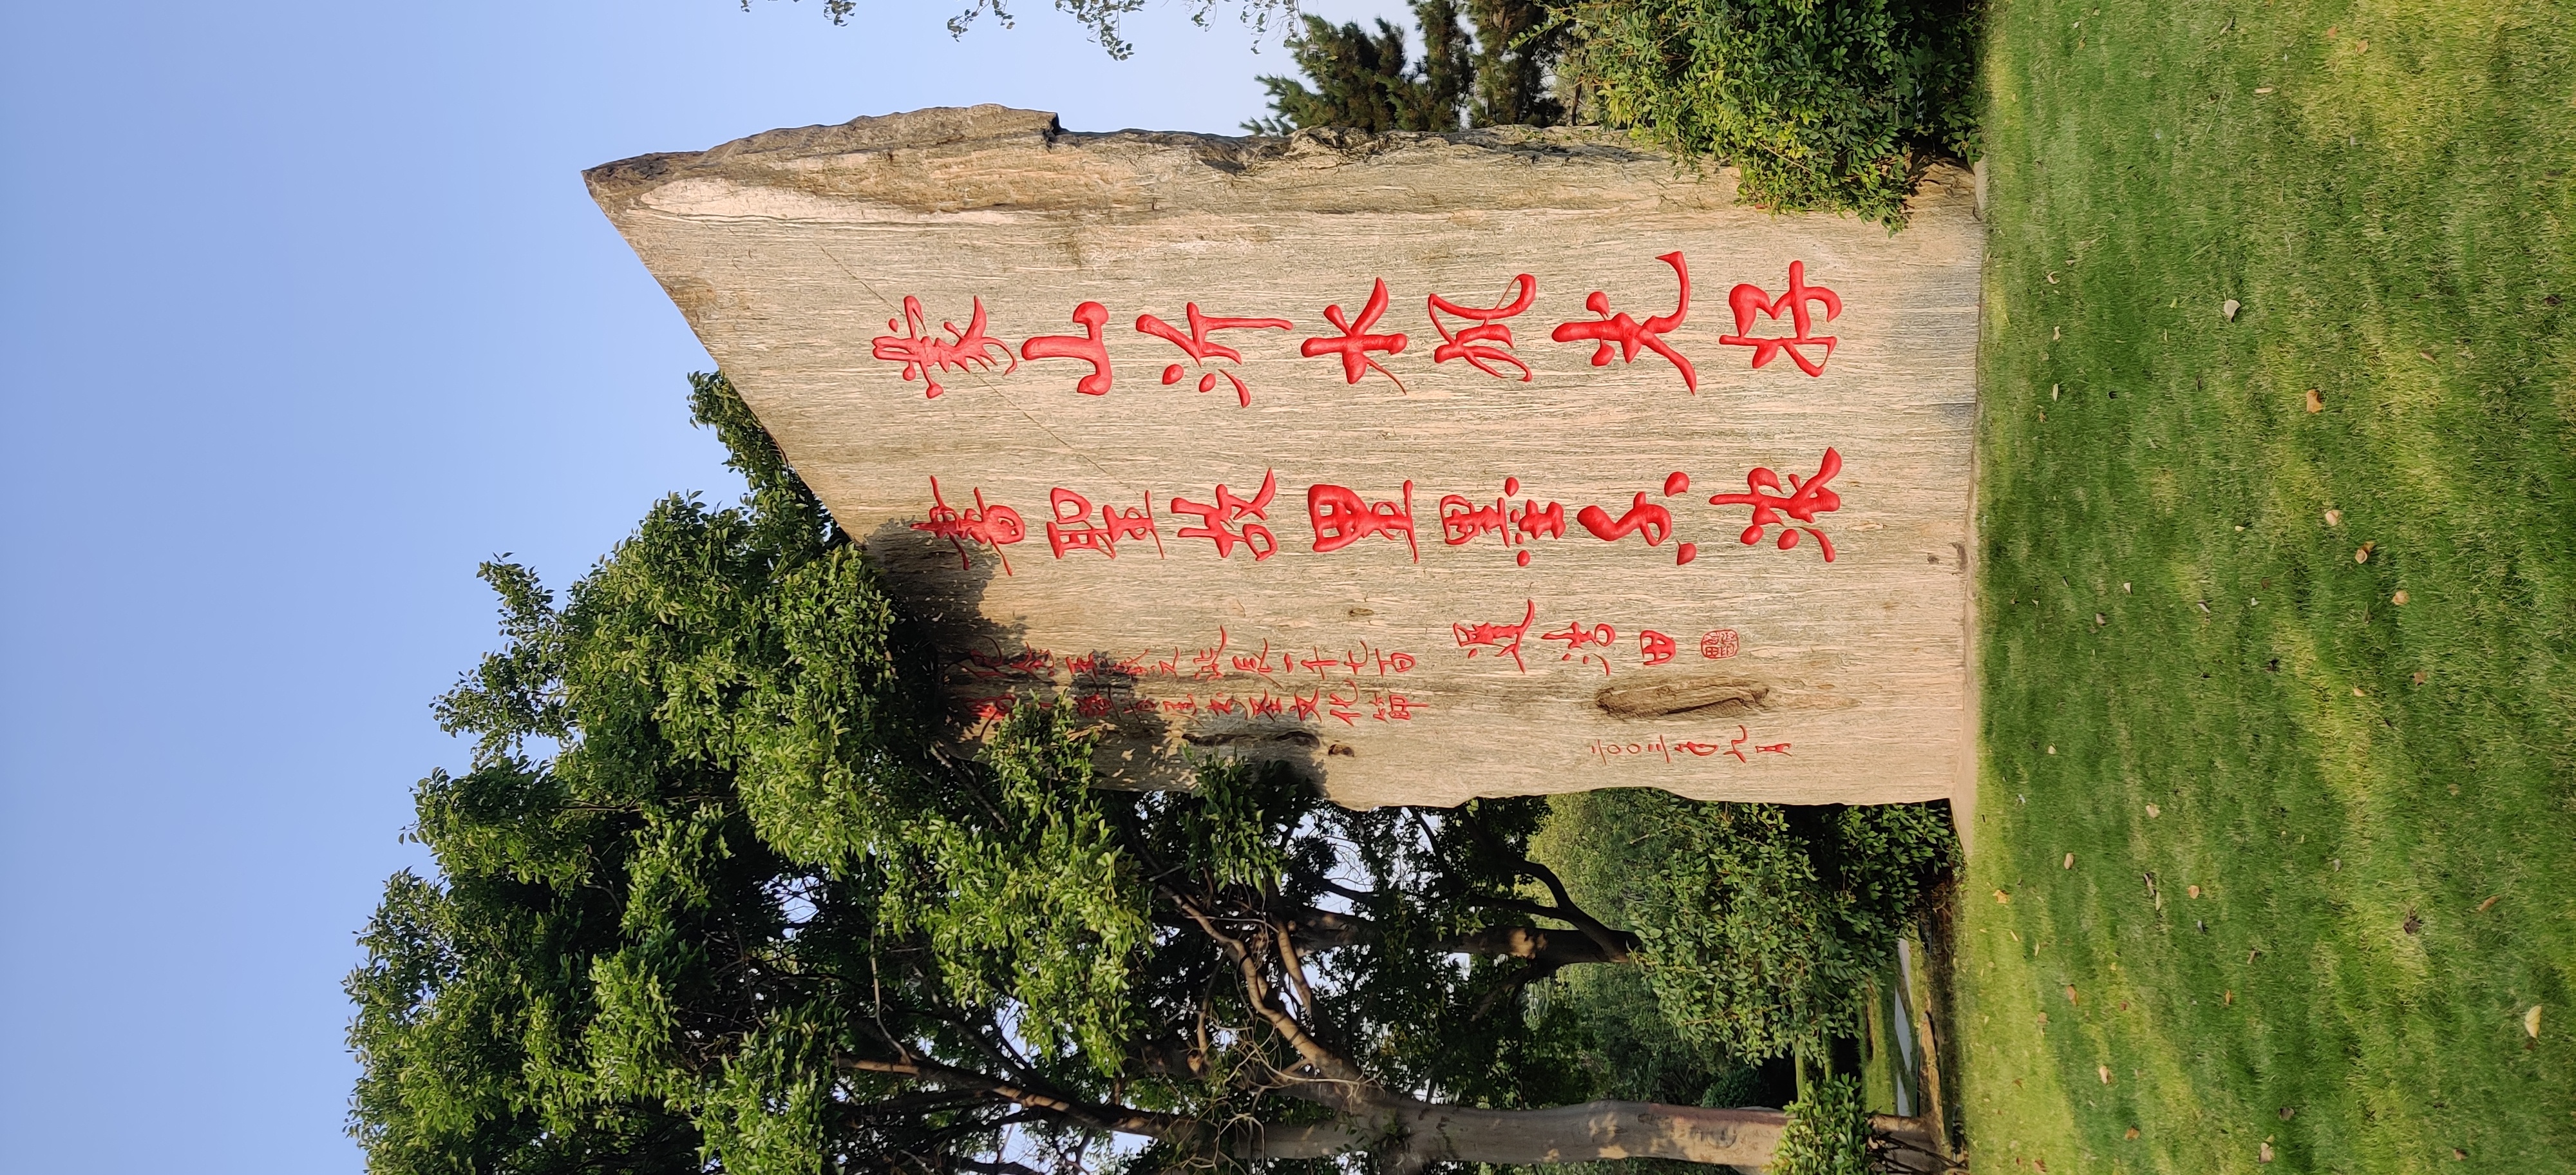 蒙山沂水风光好
書聖故里墨香浓
纪念王羲之诞辰一千七百
周年暨首届书圣文化節
遲浩田
二〇〇三年九月